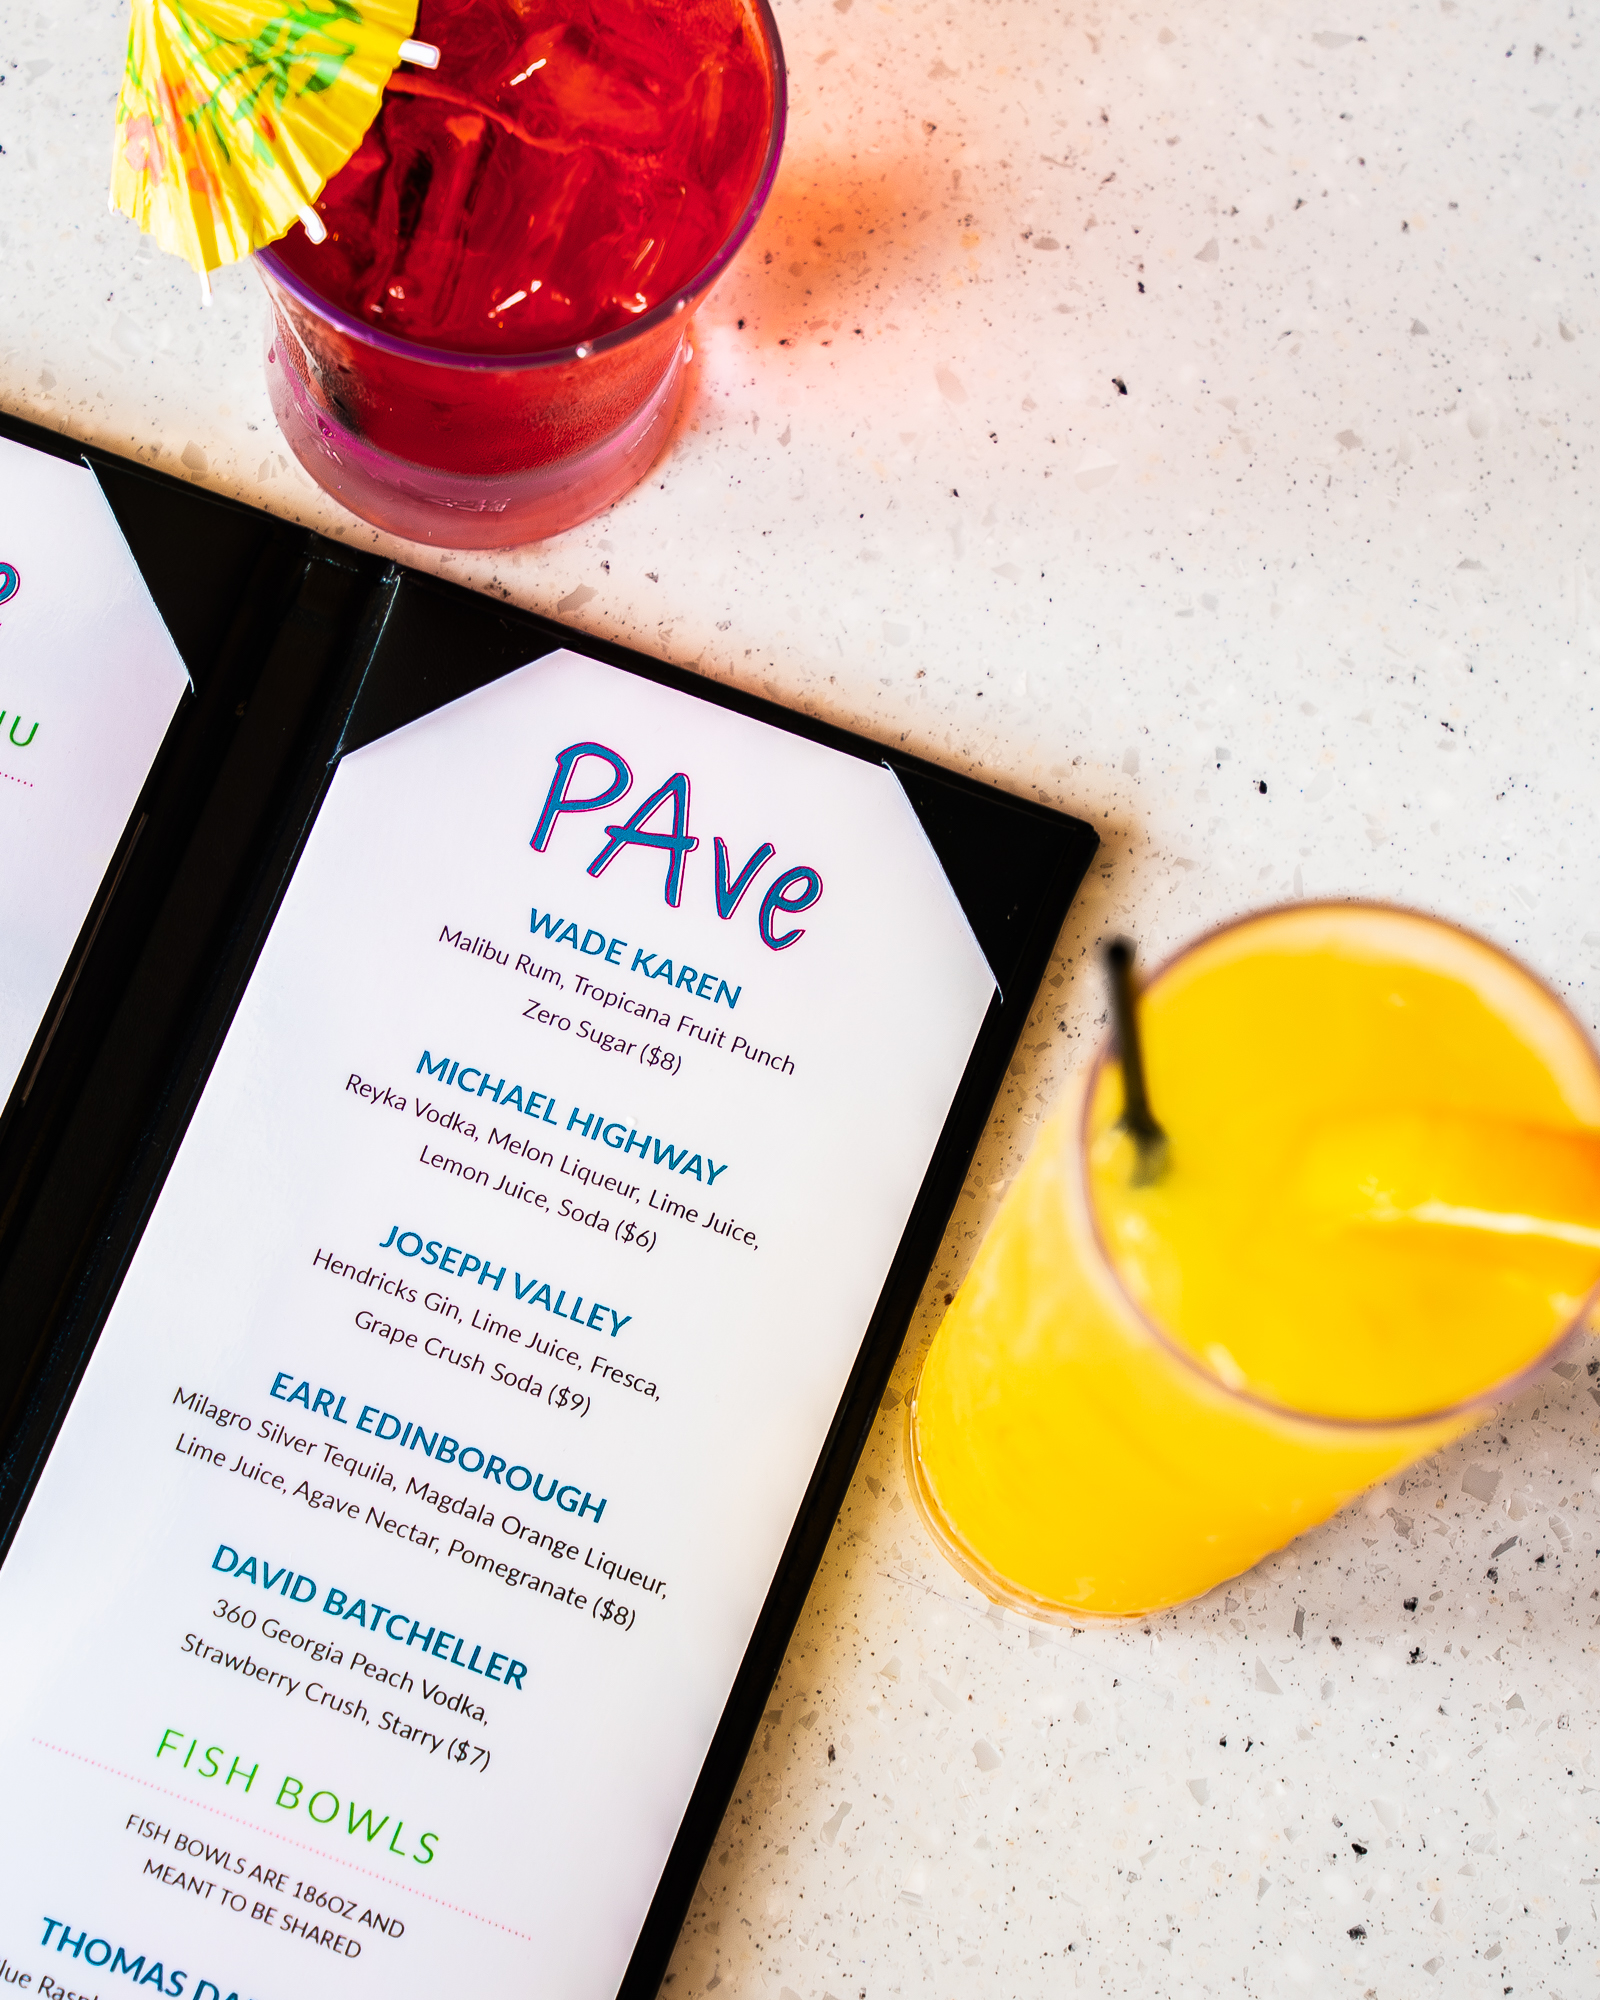 PAve
WADE KAREN
Malibu Rum, Tropicana Fruit Punch
Zero Sugar ($8)
MICHAEL HIGHWAY
Reyka Vodka, Melon Liqueur, Lime Juice,
Lemon Juice, Soda ($6)
JOSEPH VALLEY
Hendricks Gin, Lime Juice, Fresca,
Grape Crush Soda ($9)
EARL EDINBOROUGH
Milagro Silver Tequila, Magdala Orange Liqueur,
Lime Juice, Agave Nectar, Pomegranate ($8)
DAVID BATCHELLER
360 Georgia Peach Vodka,
Strawberry Crush, Starry ($7)
FISH BOWLS
FISH BOWLS ARE 186OZ AND
MEANT TO BE SHARED
THOMAS